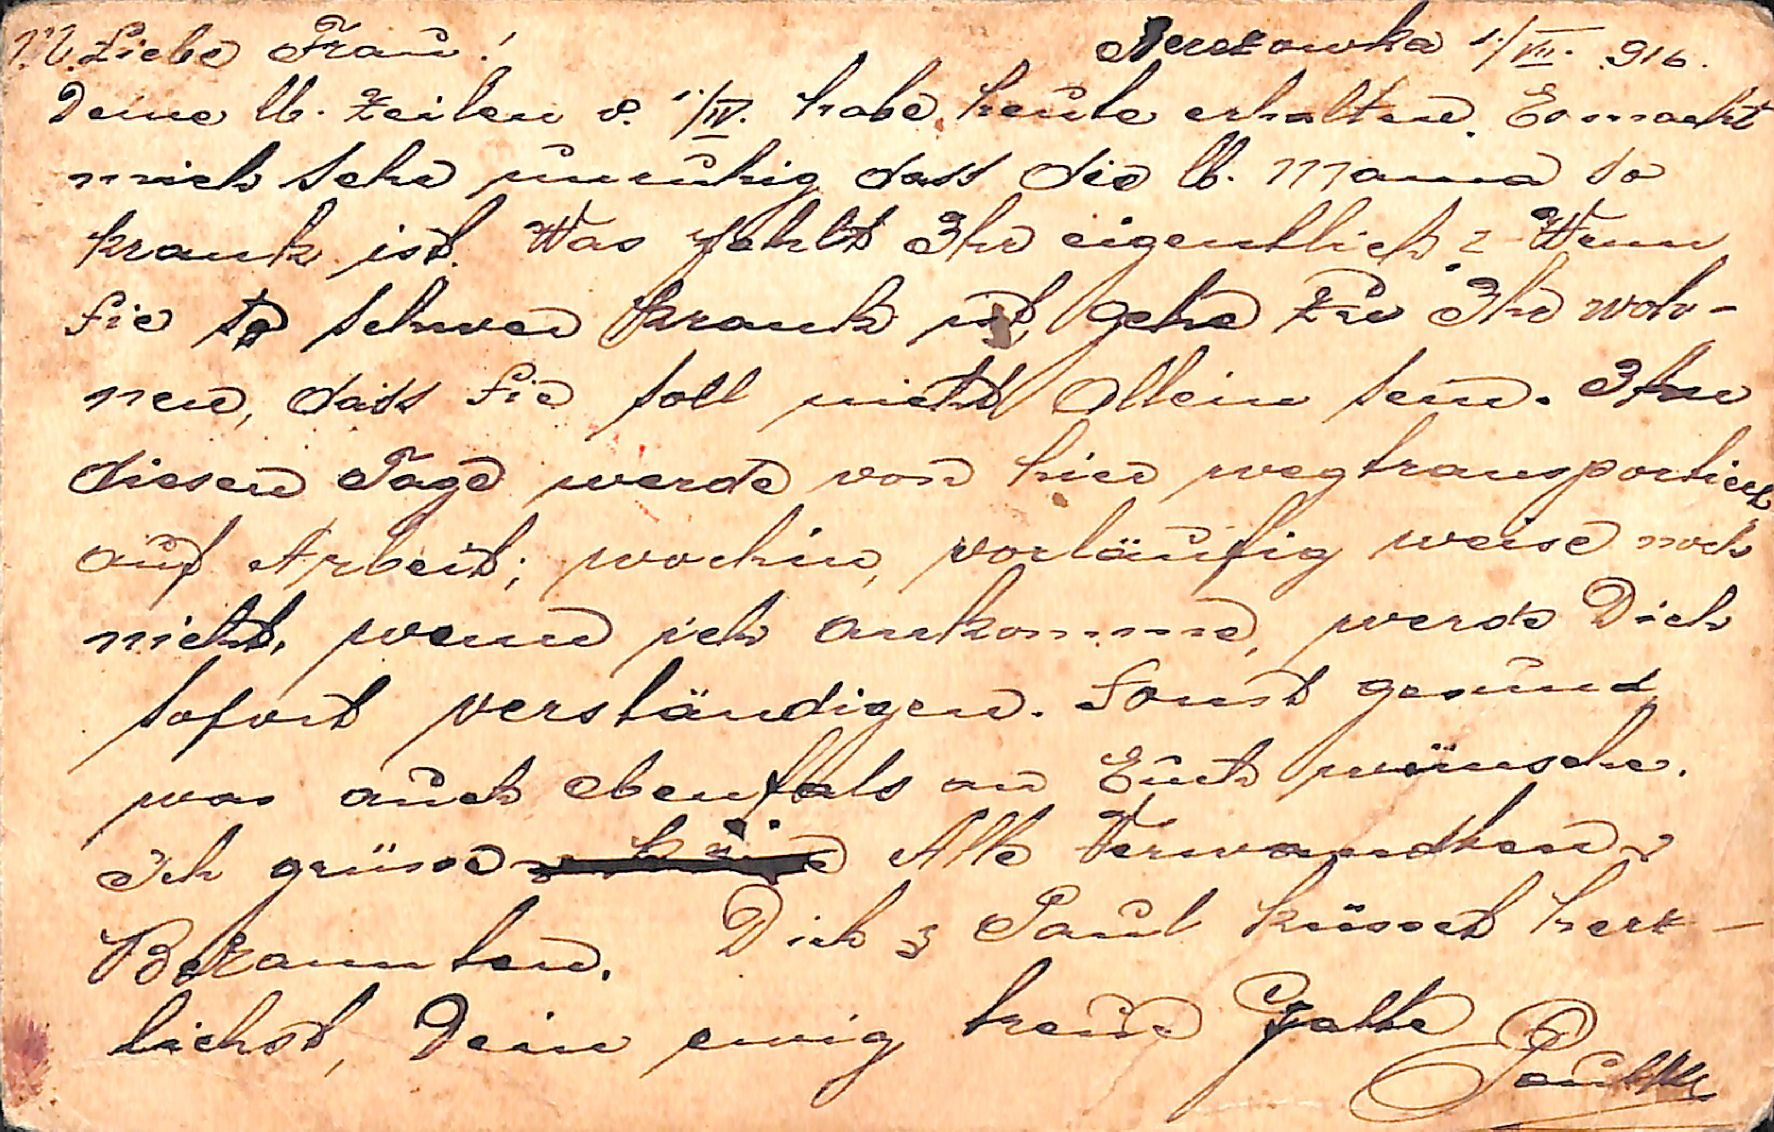 M. Liebe Frau! Berezowka 1./VII. 916.
Deine lb. Zeilen v. 1/IV. habe heute erhalten. Es macht
mich sehr unruhig dass die lb. Mama so
krank ist. Was fehlt Ihr eigentlich? Wenn
Sie so schwer krank ist, gehe zu Ihr woh-
nen, dass Sie soll nicht allein sein. In
diesen Tage werde von hier wegtransportiert
auf Arbeit; wochin, vorläufig weise noch
nicht, wenn ich ankomme, werde Dich
sofort verständigen. Sonst gesund
was auch ebenfals an Euch wünsche.
Ich grüsse Alle Verwandten u
Bekannten. Dich u Paul küsset herz-
lichst, Dein ewig treue Gatte